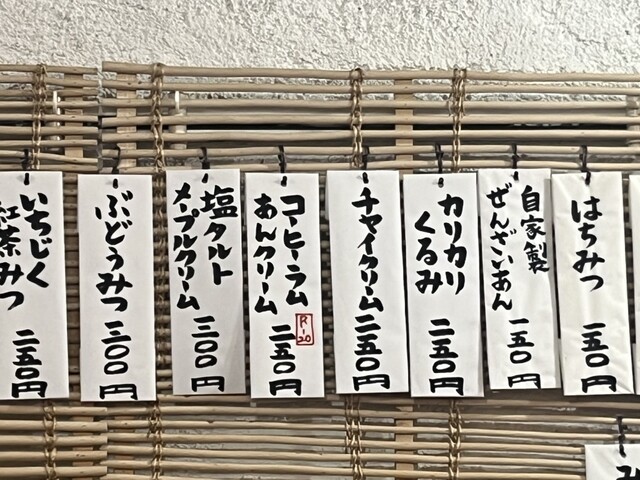 はちみつ
一五〇円
自家製
ぜんざいあん
一五〇円
カリカリ
くるみ
二五〇円
チャイクリーム
二五〇円
コーヒーラム
あんクリーム
R-20
二五〇円
塩タルト
メープルクリーム
三〇〇円
ぶどうみつ
三〇〇円
いちじく
紅茶みつ
二五〇円